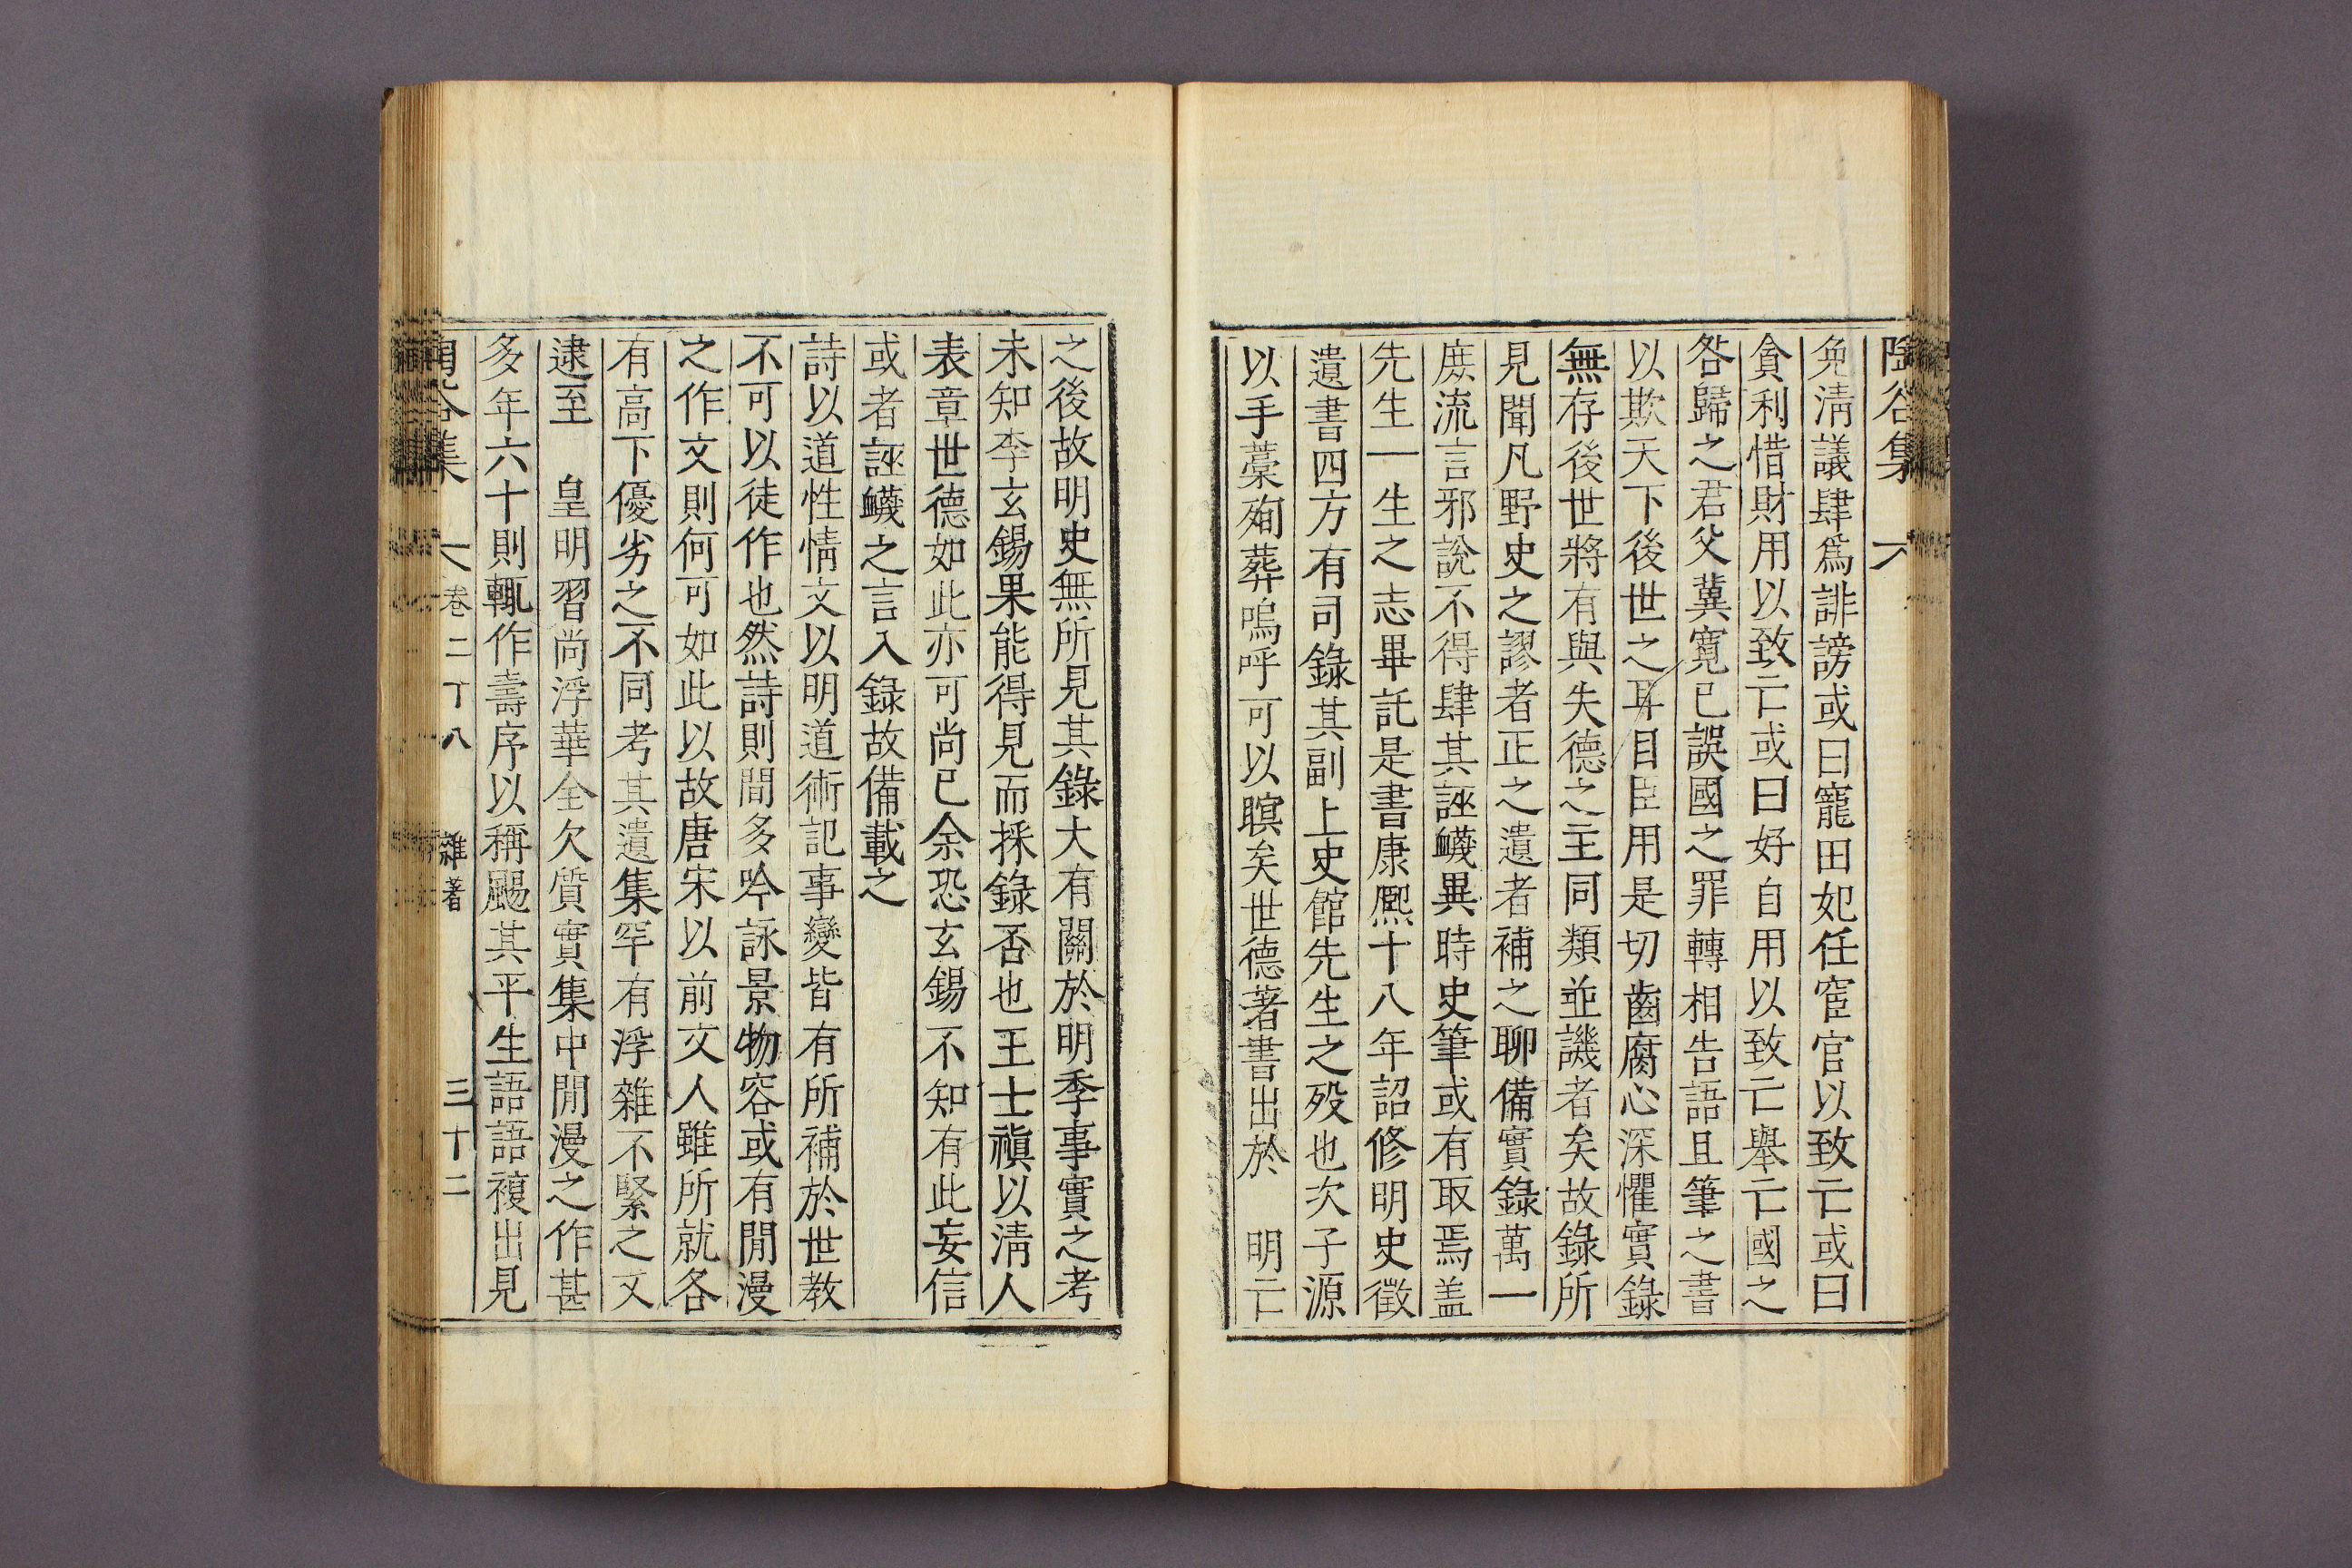 陶谷集
免淸議肆爲誹謗或曰寵田妃任宦官以致亡或曰
貪利惜財用以致亡或曰好自用以致亡舉亡國之
咎歸之君父冀寬已誤國之罪轉相告語且筆之書
以欺天下後世之耳目臣用是切齒腐心深懼實錄
無存後世將有與失德之主同類並譏者矣故錄所
見聞凡野史之謬者正之遺者補之聊備實錄萬一
庶流言邪說不得肆其誣衊異時史筆或有取焉盖
先生一生之志畢託是書康熙十八年詔修明史徵
遺書四方有司錄其副上史館先生之殁也次子源
以手藁殉葬嗚呼可以瞑矣世德著書出於 明亡
之後故明史無所見其錄大有關於明季事實之考
未知李玄錫果能得見而採錄否也王士禛以淸人
表章世德如此亦可尚已余恐玄錫不知有此妄信
或者誣衊之言入錄故備載之
詩以道性情文以明道術記事變皆有所補於世教
不可以徒作也然詩則間多吟詠景物容或有閒漫
之作文則何可如此以故唐宋以前文人雖所就各
有高下優劣之不同考其遺集罕有浮雜不緊之文
逮至 皇明習尚浮華全欠質實集中閒漫之作甚
多年六十則輒作壽序以稱颺其平生語語複出見
陶谷集 卷二十八 雜著 三十二